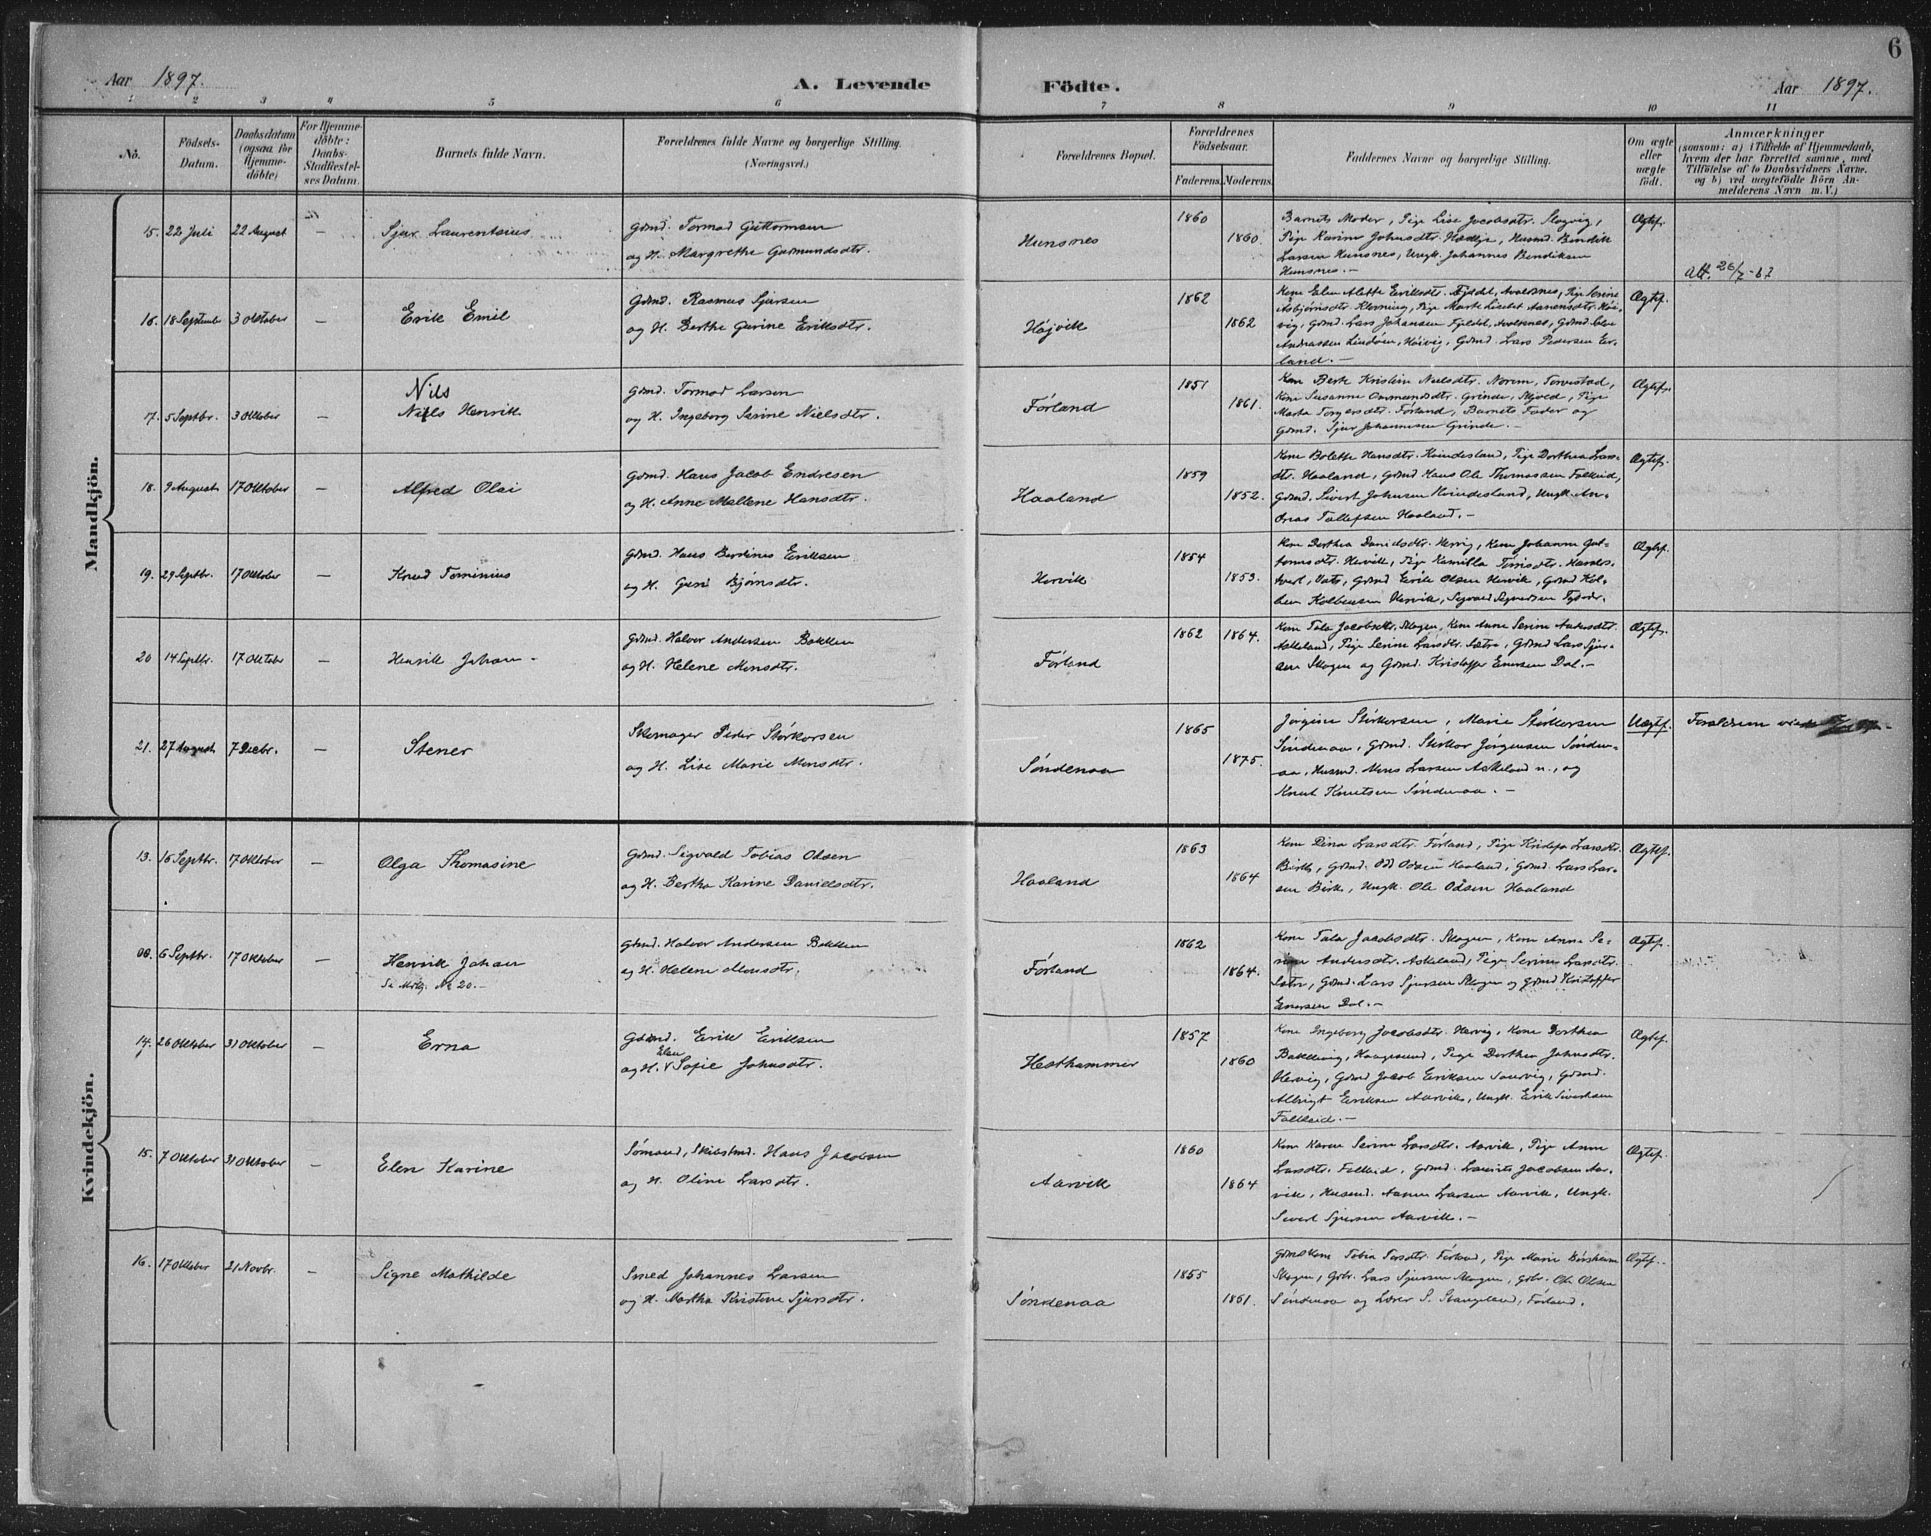 6
Aar 1897.
A. Levende Födte.
Aar 1897.
1 2 3 4 5 6 7 8 9 10 11
No.
Födsels-
Datum.
Daabsdatum
(ogsaa for
Hjemme-
döbte)
For Hjemme-
döbte:
Daabs-
Stadfæstel-
ses Datum.
Barnets fulde Navn.
Forældrenes fulde Navne og borgerlige Stilling.
(Næringsvei.)
Forældrenes Bopæl.
Forældrenes
Födselsaar.
Faderens. Moderens.
Faddernes Navne og borgerlige Stilling.
Om ægte
eller
uægte
födt.
Anmærkninger
(saasom: a) i Tilfælde af Hjemmedaab,
hvem der har forrettet samme, med
Tilföielse af to Daabsvidners Navne.
og b) ved uægtefödte Börn An-
melderens Navn m. V.)
Mandkjön.
15. 22 Juli 22 August — Sjur Laurentsius
Gdmd. Tormod Guttormsen
og H. Margrethe Gudmundsdtr.
Hunsnes
1860 1860.
Barnets Moder, Pige Lise Jacobsdtr. Skogvig,
Pige Karine Johnsdtr. Hædle, Husmd. Bendik
Larsen Hunsnes, Ungk. Johannes Bendiksen
Hunsnes. —
Ægtef.
Att. 26/7-67
16. 18 September 3 Oktober — Erik Emil
Gdmd. Rasmus Sjursen
og H. Berthe Gurine Eriksdtr.
Højvik
1862 1862
Kone Elen Alette Eriksdtr. Fjeldet, Avaldsnes, Pige Serine
Asbjørnsdtr. Pige Marte Lisebet Høi-
vig, Gdmd. Lars Johansen Fjeldet, Avaldsnes, Gdmd.
Andreassen Lindøen, Høivig, Gdmd. Lars Pedersen Er-
land. —
Ægtef.
17. 5 Septbr. 3 Oktober —
Nils
Niels Henrik
Gdmd. Tormod Larsen
og H. Ingeborg Serine Nielsdtr.
Førland
1851 1861.
Kone Berte Kristine Nielsdtr. Norem, Torvestad,
Kone Susanne Osmundsdtr. Grinde, Skjold, Pige
Marta Torgersdtr. Førland, Barnets Fader og
Gdmd. Sjur Johannesen Grinde. —
Ægtef.
18. 9 August 17 Oktober — Alfred Olai
Gdmd. Hans Jacob Endresen
og H. Anne Mallene Hansdtr.
Haaland
1859 1852.
Kone Bolette Hansdtr. Kvindesland, Pige Dorthea Lars-
dtr. Haaland, Gdmd Hans Ole Thomassen Falkeid,
Gdmd. Sivert Johnsen Kvindesland, Ungk. An-
dreas Tollefsen Haaland. —
Ægtef.
19. 29 Septbr. 17 Oktober — Knud Tominius
Gdmd. Hans Berdines Eriksen
og H. Guri Bjørnsdtr.
Hervik
1854 1853.
Kone Berthea Danielsdtr. Hervig, Kone Johanne Gut-
tormsdtr. Hervik, Pige Kamilla Tørrisdtr.
Vats, Gdmd Erik Olsen Hervik, Gdmd Kol-
ben Kolbensen Hervik,
Ægtef.
20 14 Septbr. 17 Oktober — Henrik Johan -
Gdmd. Halvor Andersen Bakken
og H. Helene Monsdtr.
Førland
1862 1864.
Kone Tala Jacobsdtr. Skogen, Kone Anne Serine Andersdtr.
Askeland, Pige Serine Larsdtr. Sætre, Gdmd Lars Sjur-
sen Skogen og Gdmd. Kristoffer Enersen Dal. —
Ægtef.
21. 27 August 7 Decbr. — Stener
Skomager Peder Størkorsen
og H. Lise Marie Monsdtr.
Søndenaa
1865 1875.
Jørgine Størkorsen, Marie Størkorsen
Søndenaa, Gdmd. Størkor Jørgensen Sønden-
aa, Husmd. Mons Larsen Askeland n., og
Knut Knutsen Søndenaa. —
Uægtef.
Forældrene viede
Kvindekjön.
13. 16 Septbr. 17 Oktober — Olga Thomasine
Gdmd. Sigvald Tobias Odsen
og H. Bertha Karine Danielsdtr.
Haaland
1863 1864
Kone Dina Larsdtr. Førland, Pige Larsdtr.
Birke, Gdmd. Odd Odsen Haaland, Gdmd. Lars Lar-
sen Birke, Ungk. Ole Odsen Haaland
Ægtef.
00. 6 Septbr. 17 Oktober — Henrik Johan
Se Mdkj. No 20. -
Gdmd. Halvor Andersen Bakken
og H. Helene Monsdtr.
Førland
1862 1864.
Kone Tala Jacobsdtr. Skogen, Kone Anne Se-
rine Andersdtr. Askeland, Pige Serine Larsdtr.
Sætre, Gdmd. Lars Sjursen Skogen og Gdmd Kristoffer
Enersen Dal. —
Ægtef.
14. 26 Oktober 31 Oktober — Erna
Gdmd. Erik Eriksen
Elen
og H. Sofie Johnsdtr.
Hesthammer
1857 1860
Kone Ingeborg Jacobsdtr. Hervig, Kone Dorthea
Bakkevig, Haugesund, Pige Dorthea Johnsdtr.
Hervig, Gdmd Jacob Eriksen Gdmd.
Albrigt Eriksen Aarvik, Ungk. Erik Sivertsen
Falkeid. —
Ægtef.
15. 7 Oktober 31 Oktober — Elen Karine
Sømand, Skibstmd. Hans Jacobsen
og H. Oline Larsdtr.
Aarvik
1860 1864
Kone Karen Serine Larsdtr. Aarvik, Pige Anne
Larsdtr. Falkeid, Gdmd. Laurits Jacobsen Aar-
vik, Husmd. Larsen Aarvik, Ungk.
Sivert Sjursen Aarvik. —
Ægtef.
16. 17 Oktober 21 Novbr. — Signe Mathilde
Smed Johannes Larsen
og H. Martha Kristine Sjursdtr.
Søndenaa
1855 1861.
Gdmdskone Tobia Førland, Pige Marie Børsheim
Skogen, Gbr. Lars Sjursen Skogen, Gbr. Ole Olsen
Søndenaa og Lærer S. Stangeland, Førland.
Ægtef.